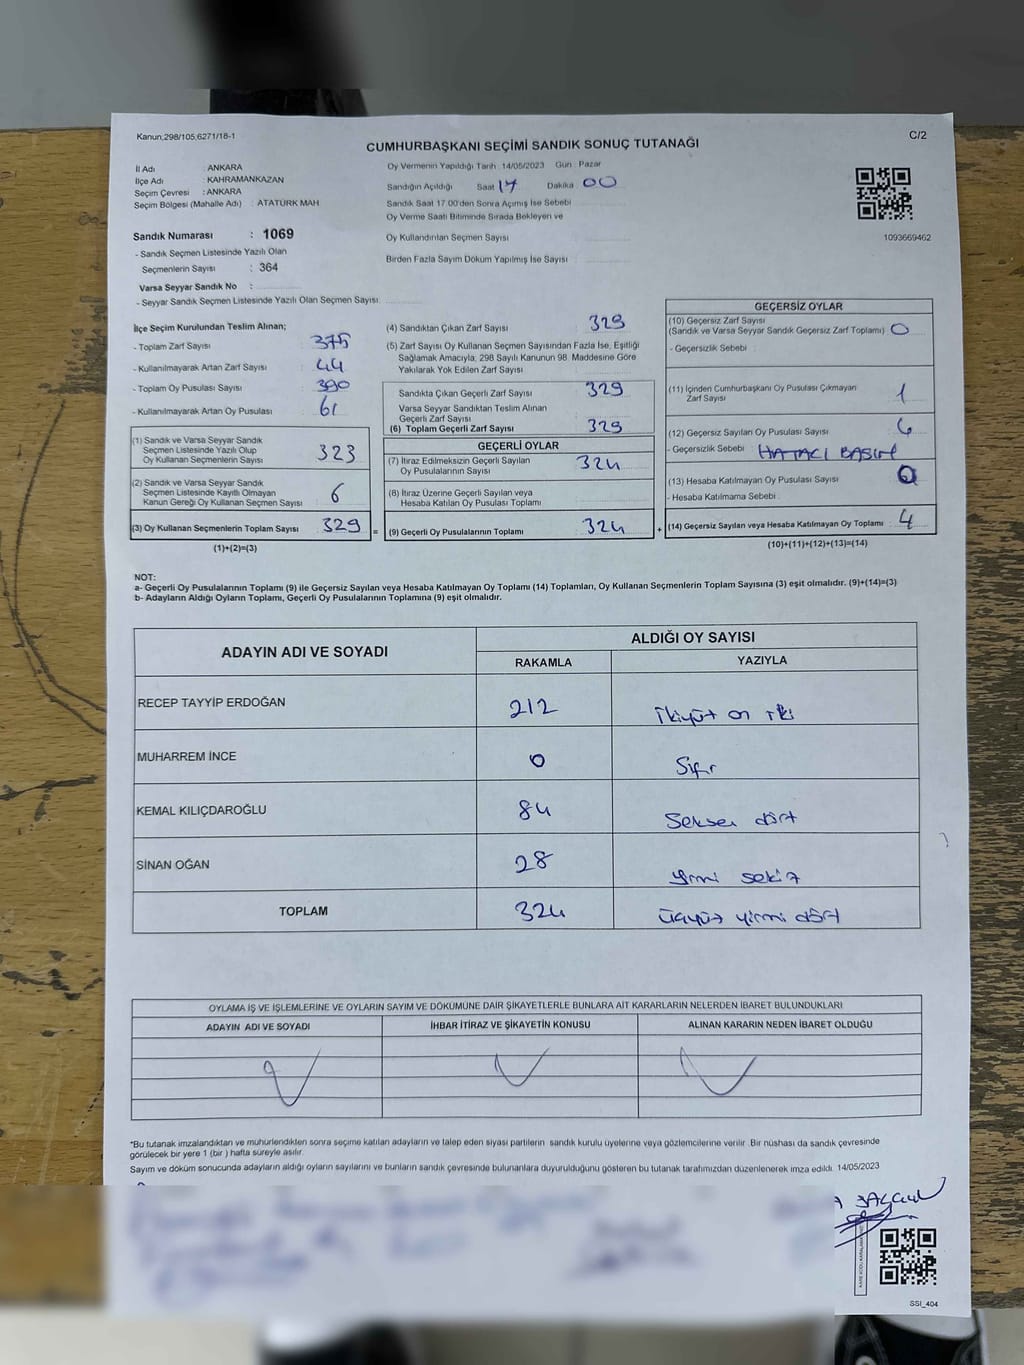 Kanun,298/105,6271/18-1
C/2
CUMHURBAŞKANI SEÇİMİ SANDIK SONUÇ TUTANAĞI
İl Adı : ANKARA
İlçe Adı : KAHRAMANKAZAN
Seçim Çevresi : ANKARA
Seçim Bölgesi (Mahalle Adı) : ATATÜRK MAH
Sandık Numarası : 1069
- Sandık Seçmen Listesinde Yazılı Olan
Seçmenlerin Sayısı : 364
Varsa Seyyar Sandık No :
- Seyyar Sandık Seçmen Listesinde Yazılı Olan Seçmen Sayısı:
Oy Vermenin Yapıldığı Tarih 14/05/2023 Gün Pazar
Sandığın Açıldığı Saat 17 Dakika 00
Sandık Saat 17.00'den Sonra Açımış İse Sebebi
Oy Verme Saati Bitiminde Sırada Bekleyen ve
Oy Kullandırılan Seçmen Sayısı
Birden Fazla Sayım Döküm Yapılmış İse Sayısı
1093669462
İlçe Seçim Kurulundan Teslim Alınan;
- Toplam Zarf Sayısı 375
- Kullanılmayarak Artan Zarf Sayısı 44
- Toplam Oy Pusulası Sayısı 390
- Kullanılmayarak Artan Oy Pusulası 61
(1) Sandık ve Varsa Seyyar Sandık
Seçmen Listesinde Yazılı Olup
Oy Kullanan Seçmenlerin Sayısı 323
(2) Sandık ve Varsa Seyyar Sandık
Seçmen Listesinde Kayıtlı Olmayan
Kanun Gereği Oy Kullanan Seçmen Sayısı 6
(3) Oy Kullanan Seçmenlerin Toplam Sayısı 329 =
(1)+(2)=(3)
(4) Sandıktan Çıkan Zarf Sayısı 329
(5) Zarf Sayısı Oy Kullanan Seçmen Sayısından Fazla İse, Eşitliği
Sağlamak Amacıyla; 298 Sayılı Kanunun 98. Maddesine Göre
Yakılarak Yok Edilen Zarf Sayısı
Sandıkta Çıkan Geçerli Zarf Sayısı 329
Varsa Seyyar Sandıktan Teslim Alınan
Geçerli Zarf Sayısı
(6) Toplam Geçerli Zarf Sayısı 329
GEÇERLİ OYLAR
(7) İtiraz Edilmeksizin Geçerli Sayılan
Oy Pusulalarının Sayısı 324
(8) İtiraz Üzerine Geçerli Sayılan veya
Hesaba Katılan Oy Pusulaları Toplamı
(9) Geçerli Oy Pusulalarının Toplamı 324 +
GEÇERSİZ OYLAR
(10) Geçersiz Zarf Sayısı
(Sandık ve Varsa Seyyar Sandık Geçersiz Zarf Toplamı) 0
- Geçersizlik Sebebi
(11) İçinden Cumhurbaşkanı Oy Pusulası Çıkmayan
Zarf Sayısı 1
(12) Geçersiz Sayılan Oy Pusulası Sayısı
- Geçersizlik Sebebi
(13) Hesaba Katılmayan Oy Pusulası Sayısı 0
- Hesaba Katılmama Sebebi
(14) Geçersiz Sayılan veya Hesaba Katılmayan Oy Toplamı 4
(10)+(11)+(12)+(13)=(14)
NOT:
a- Geçerli Oy Pusulalarının Toplamı (9) ile Geçersiz Sayılan veya Hesaba Katılmayan Oy Toplamı (14) Toplamları, Oy Kullanan Seçmenlerin Toplam Sayısına (3) eşit olmalıdır. (9)+(14)=(3)
b- Adayların Aldığı Oyların Toplamı, Geçerli Oy Pusulalarının Toplamına (9) eşit olmalıdır.
ADAYIN ADI VE SOYADI
ALDIĞI OY SAYISI
RAKAMLA YAZIYLA
RECEP TAYYİP ERDOĞAN 212 ikiyüz on iki
MUHARREM İNCE 0 Sıfır
KEMAL KILIÇDAROĞLU 84 Seksen dört
SİNAN OĞAN 28 yirmi sekiz
TOPLAM 324 üçyüz yirmi dört
OYLAMA İŞ VE İŞLEMLERİNE VE OYLARIN SAYIM VE DÖKÜMÜNE DAİR ŞİKAYETLERLE BUNLARA AİT KARARLARIN NELERDEN İBARET BULUNDUKLARI
ADAYIN ADI VE SOYADI İHBAR İTİRAZ VE ŞİKAYETİN KONUSU ALINAN KARARIN NEDEN İBARET OLDUĞU
*Bu tutanak imzalandıktan ve mühürlendikten sonra seçime katılan adayların ve talep eden siyasi partilerin sandık kurulu üyelerine veya gözlemcilerine verilir. Bir nüshası da sandık çevresinde
görülecek bir yere 1 (bir ) hafta süreyle asılır.
Sayım ve döküm sonucunda adayların aldığı oyların sayılarını ve bunların sandık çevresinde bulunanlara duyurulduğunu gösteren bu tutanak tarafımızdan düzenlenerek imza edildi. 14/05/2023
SSI_404